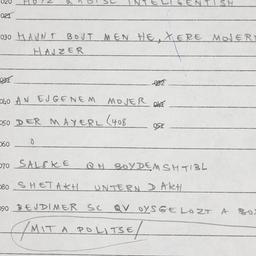 020 INTELIGENTISH
021
030 HAUNT BOUT MEN HE, XERE MOJERN
HAJZER
040 AN EJGENEM MOJER
050 DER MAYERL (408
052
060 0
070 SALSKE QH BOYDEMSHTIBL
080 SHETAKH UNTERN DAKH
090 BEJDIMER SC QV OYSGELOZT A BOJ
/MIT A POLITSE/